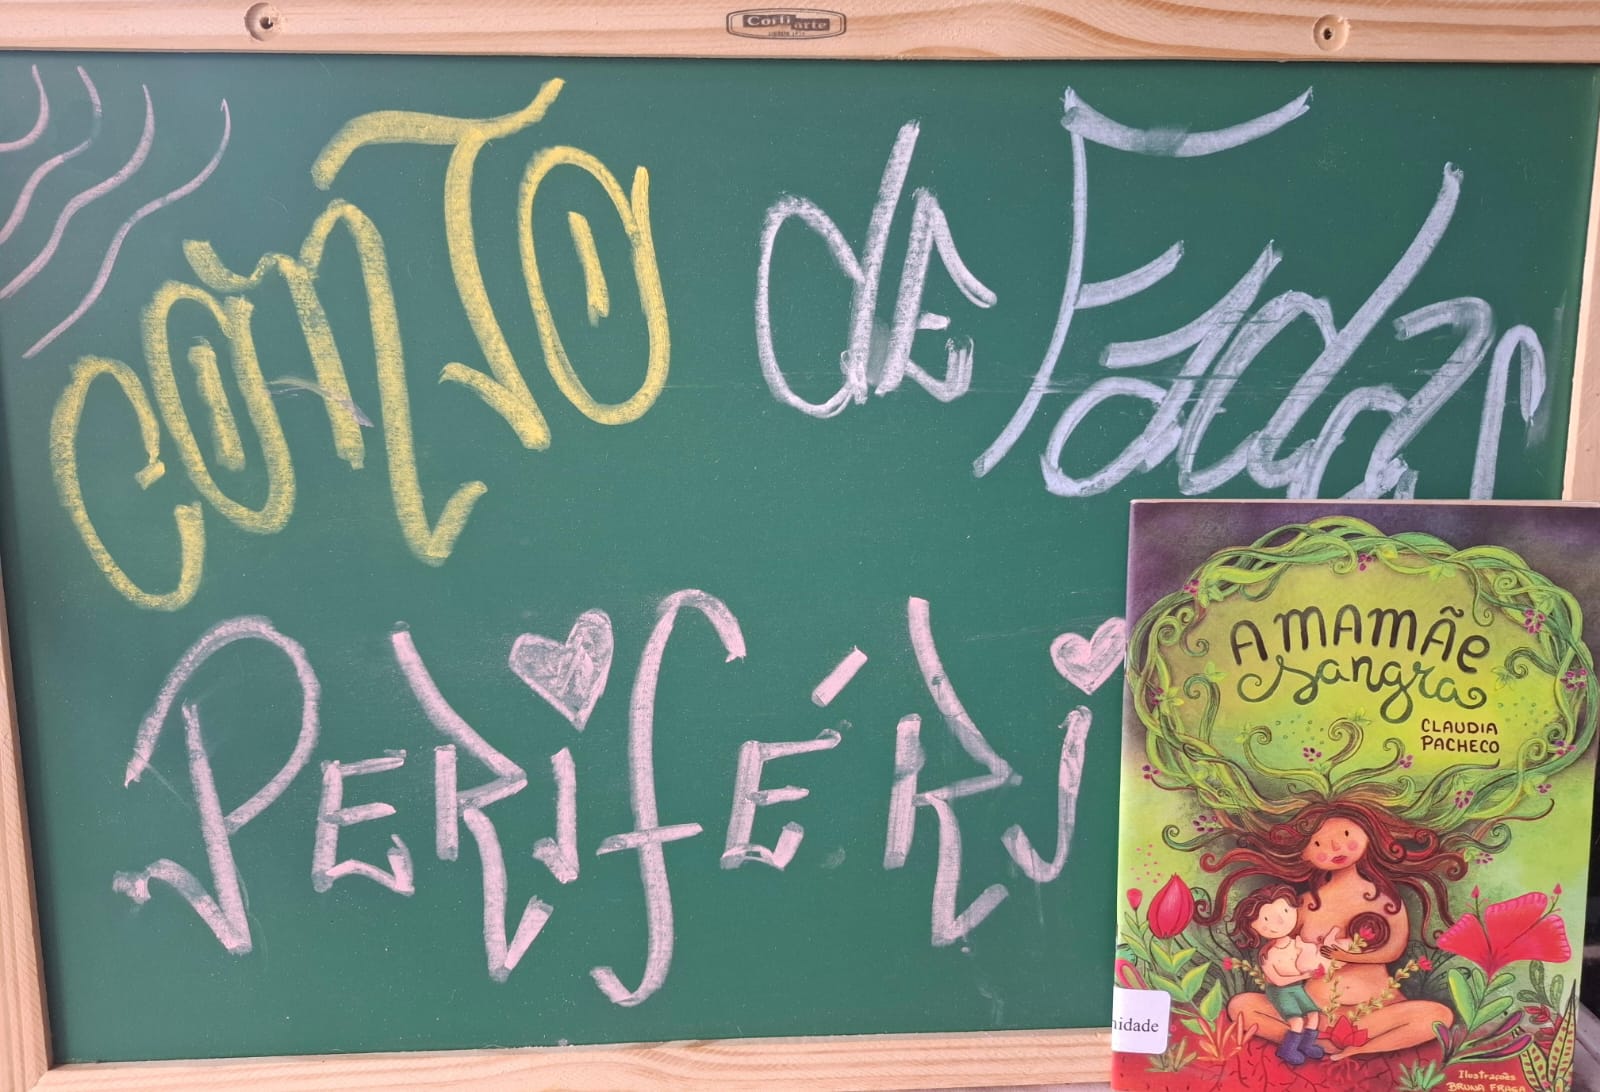 Corti arte
CONTO de Fadas
PERIFÉRI
A MAMÃE
sangra
CLAUDIA
PACHECO
nidade
Ilustrações
BRUNA FRAGA